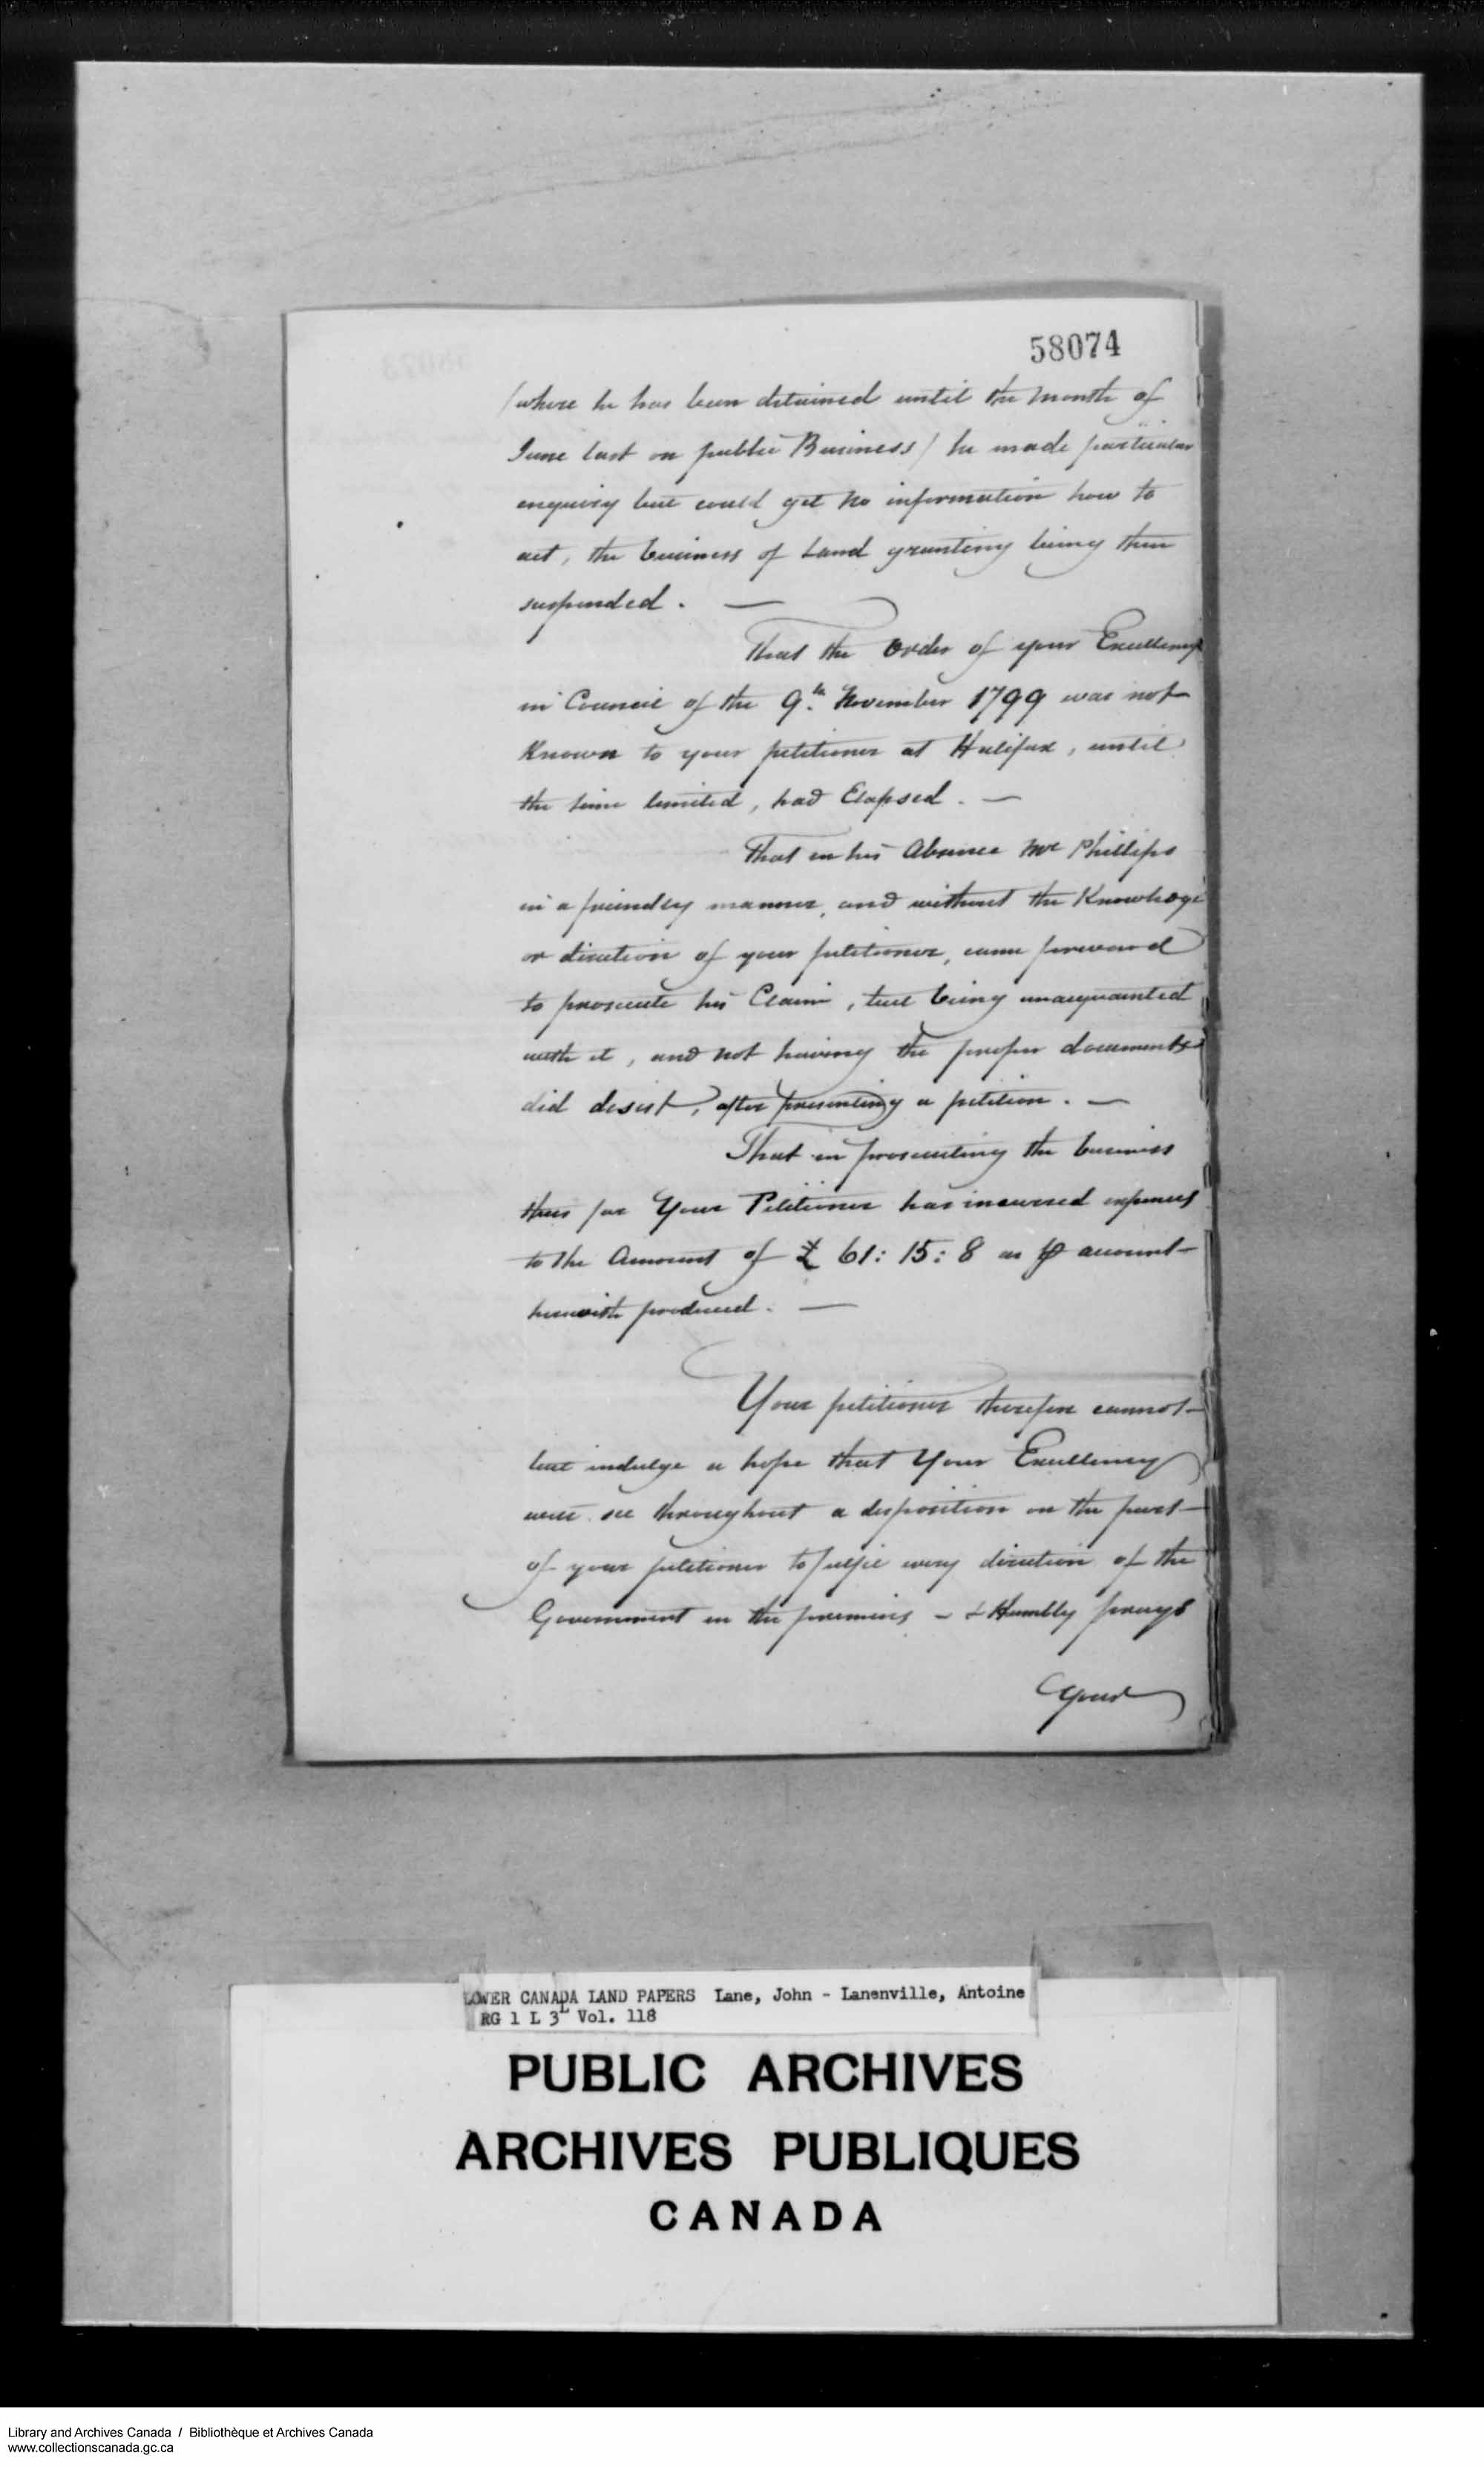 58074
(where he has been detained until the month of
June last on public Business) he made particular
enquiry but could get no information how to
act, the business of Land granting being then
suspended. —
That the Order of your Excellency
in Council of the 9.th November 1799 was not
Known to your petitioner at Halifax, until
the time limited, had Elapsed. —
That in his Absence Mr Phillips
in a friendly manner, and without the Knowledge
or direction of your petitioner, came forward
to prosecute his Claim, but being unacquainted
with it, and not having the proper documents
did desist, after presenting a petition. —
That in prosecuting the business
thus far Your Petitioner has incurred expences
to the Amount of £ 61: 15: 8 as ⅌ account
herewith produced. —
Your petitioner therefore cannot
but indulge a hope that Your Excellency
will see throughout a disposition on the part
of your petitioner to fulfil every direction of the
Government in the premises – & Humbly prays
Your
LOWER CANADA LAND PAPERS Lane, John - Lanenville, Antoine
RG 1 L 3L Vol. 118
PUBLIC ARCHIVES
ARCHIVES PUBLIQUES
CANADA
Library and Archives Canada / Bibliothèque et Archives Canada
www.collectionscanada.gc.ca